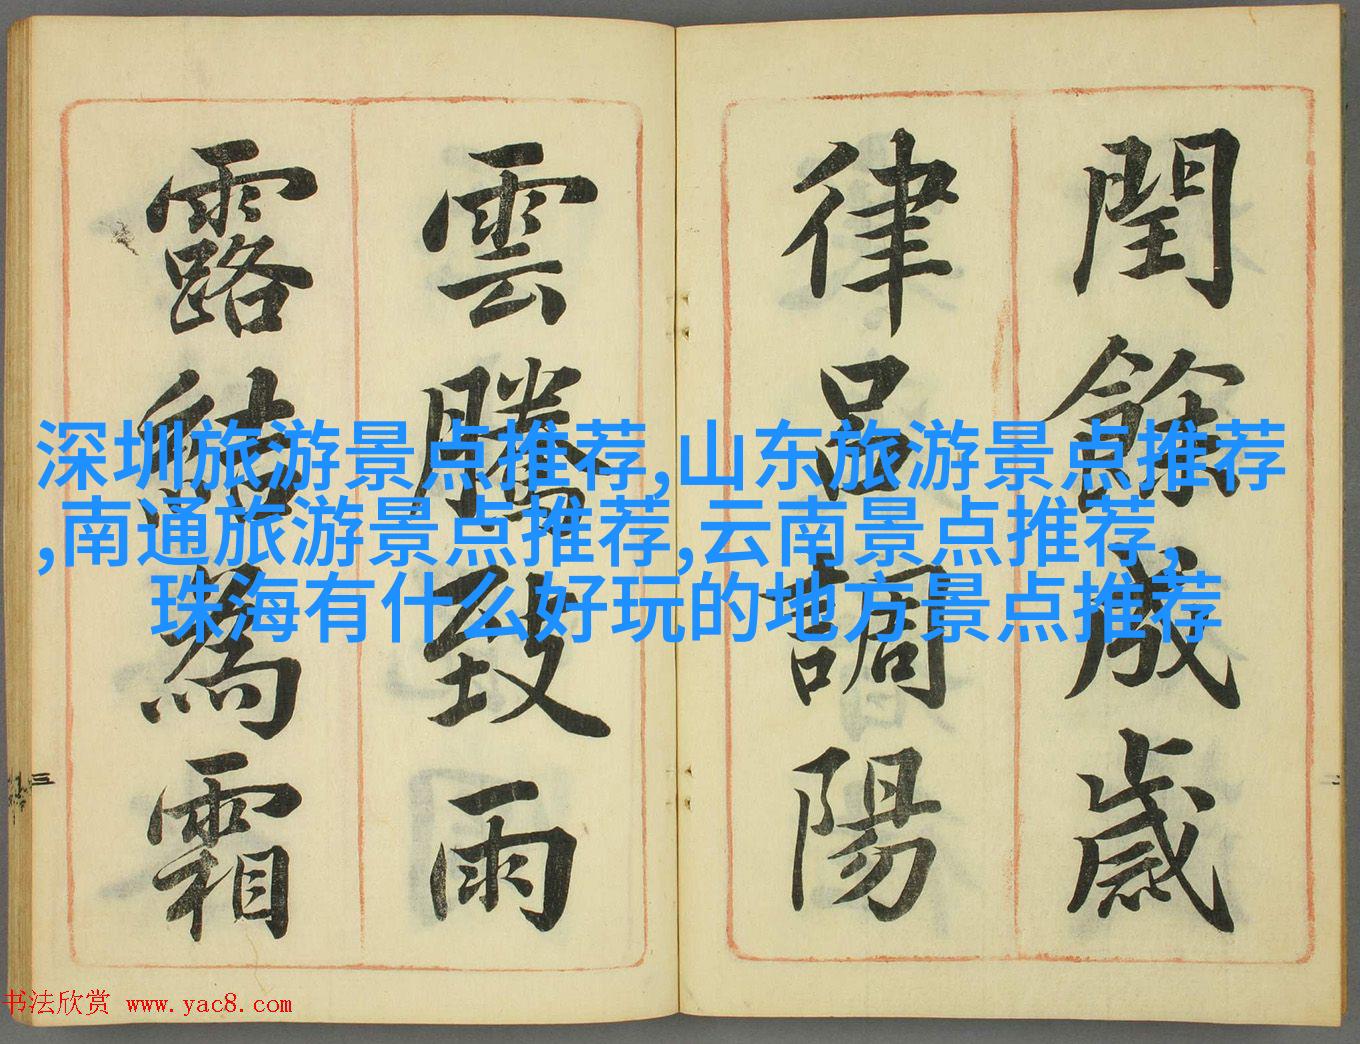 閏餘成歲
律呂調陽
雲騰致雨
露結為霜
深圳旅游景点推荐,山东旅游景点推荐
,南通旅游景点推荐,云南景点推荐,
珠海有什么好玩的地方景点推荐
三
二
书法欣赏 www.yac8.com